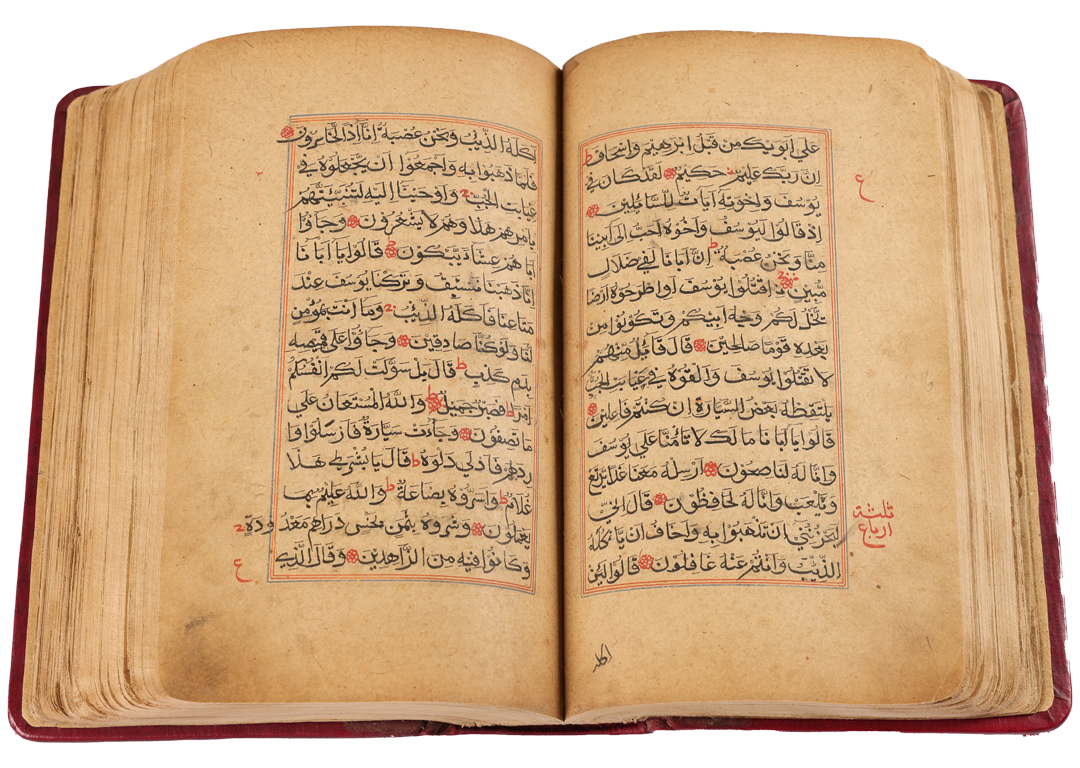 على أبويك من قبل ابرهيم واسحاق ط
ان ربك عليم حكيم لقد كان في
يوسف واخوته آيات للسائلين
اذ قالوا ليوسف واخوه احب الى ابينا
منا ونحن عصبة ط ان ابانا لفي ضلال
مبين اقتلوا يوسف او اطرحوه ارضا
يخل لكم وجه ابيكم وتكونوا من
بعده قوما صالحين قال قائل منهم
لا تقتلوا يوسف والقوه في غيابت الجب
يلتقطه بعض السيارة ان كنتم فاعلين
قالوا يا ابانا مالك لا تأمنا على يوسف
وانا له لناصحون ارسله معنا غدا يرتع
ويلعب وانا له لحافظون قال اني
ليحزنني ان تذهبوا به واخاف ان يأكله
الذئب وانتم عنه غافلون قالوا لئن
ع
ثلثة
ارباع
اكله
اكله الذئب ونحن عصبة انا اذا لخاسرون
فلما ذهبوا به واجمعوا ان يجعلوه في
غيابت الجب واوحينا اليه لتنبئنهم
بامرهم هذا وهم لا يشعرون وجاؤا
اباهم عشاء يبكون ط قالوا يا ابانا
انا ذهبنا نستبق وتركنا يوسف عند
متاعنا فاكله الذئب وما انت بمؤمن
لنا ولو كنا صادقين وجاؤا على قميصه
بدم كذب ط قال بل سولت لكم انفسكم
امرا ط فصبر جميل ط والله المستعان على
ما تصفون وجاءت سيارة فارسلوا وا
ردهم فادلى دلوه ط قال يا بشرى هذا
غلام ط واسروه بضاعة ط والله عليم بما
يعملون وشروه بثمن بخس دراهم معدودة
وكانوا فيه من الزاهدين وقال الذي
ع